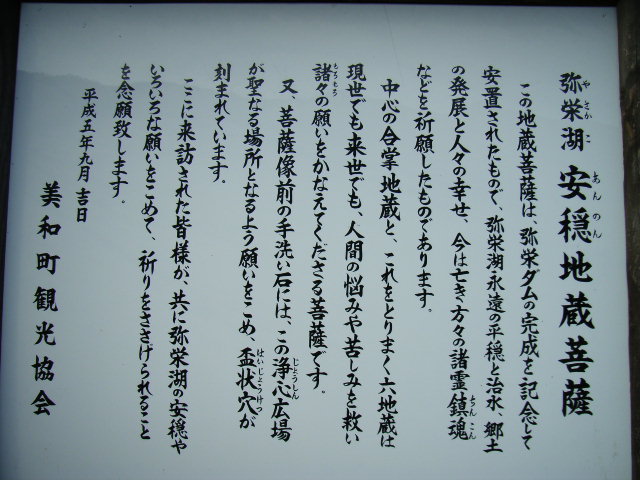 弥栄湖 安穏地蔵菩薩
この地蔵菩薩は、弥栄ダムの完成を記念して
安置されたもので、弥栄湖永遠の平穏と治水、郷土
の発展と人々の幸せ、今は亡き方々の諸霊鎮魂
などを祈願したものであります。
中心の合掌地蔵と、これをとりまく六地蔵は
現世でも来世でも、人間の悩みや苦しみを救い
諸々の願いをかなえてくださる菩薩です。
又、菩薩像前の手洗い石には、この浄心広場
が聖なる場所となるよう願いをこめ、盃状穴が
刻まれています。
ここに来訪された皆様が、共に弥栄湖の安穏や
いろいろな願いをこめて、祈りをささげられること
を念願致します。
平成五年九月吉日
美和町観光協会